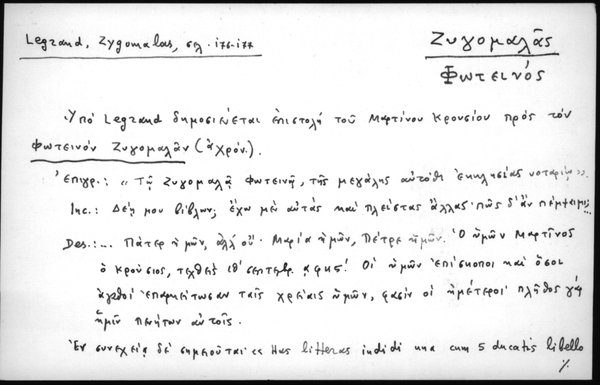 Legrand, Zygomalas, σελ. 176-177
Ζυγομαλᾶς
Φωτεινός
Ὑπό Legrand δημοσιεύεται ἐπιστολή τοῦ Μαρτίνου Κρουσίου πρός τόν
Φωτεινόν Ζυγομαλᾶν (ἀχρόν.).
Ἐπιγρ.: « Τῷ Ζυγομαλᾷ Φωτεινῷ, τῆς μεγάλης αὐτόθι ἐκκλησίας νοταρίῳ».
Inc.: Δέῃ μου βίβλων; ἔχω μὲν αὐτάς καί πλείστας ἄλλας· πῶς δ' ἄν πέμψαιμι;...
Des.:... Πάτερ ἡμῶν, ἀλλ' οὐ· Μαρία ἡμῶν, Πέτρε ἡμῶν. Ὁ ὑμῶν Μαρτῖνος
ὁ Κρούσιος, τεχθείς ιθ' σεπτεμβρ. αφκς'! Οἱ ὑμῶν ἐπίσκοποι καί ὅσοι
ἀγαθοί ἐπαρκείτωσαν ταῖς χρείαις ὑμῶν, φασίν οἱ ἡμέτεροι· πλῆθος γάρ
ἡμῖν πενήτων αὐτοῖς.
Ἐν συνεχείᾳ δέ σημειοῦται « Has litteras indidi una cum 5 ducatis libello
%.